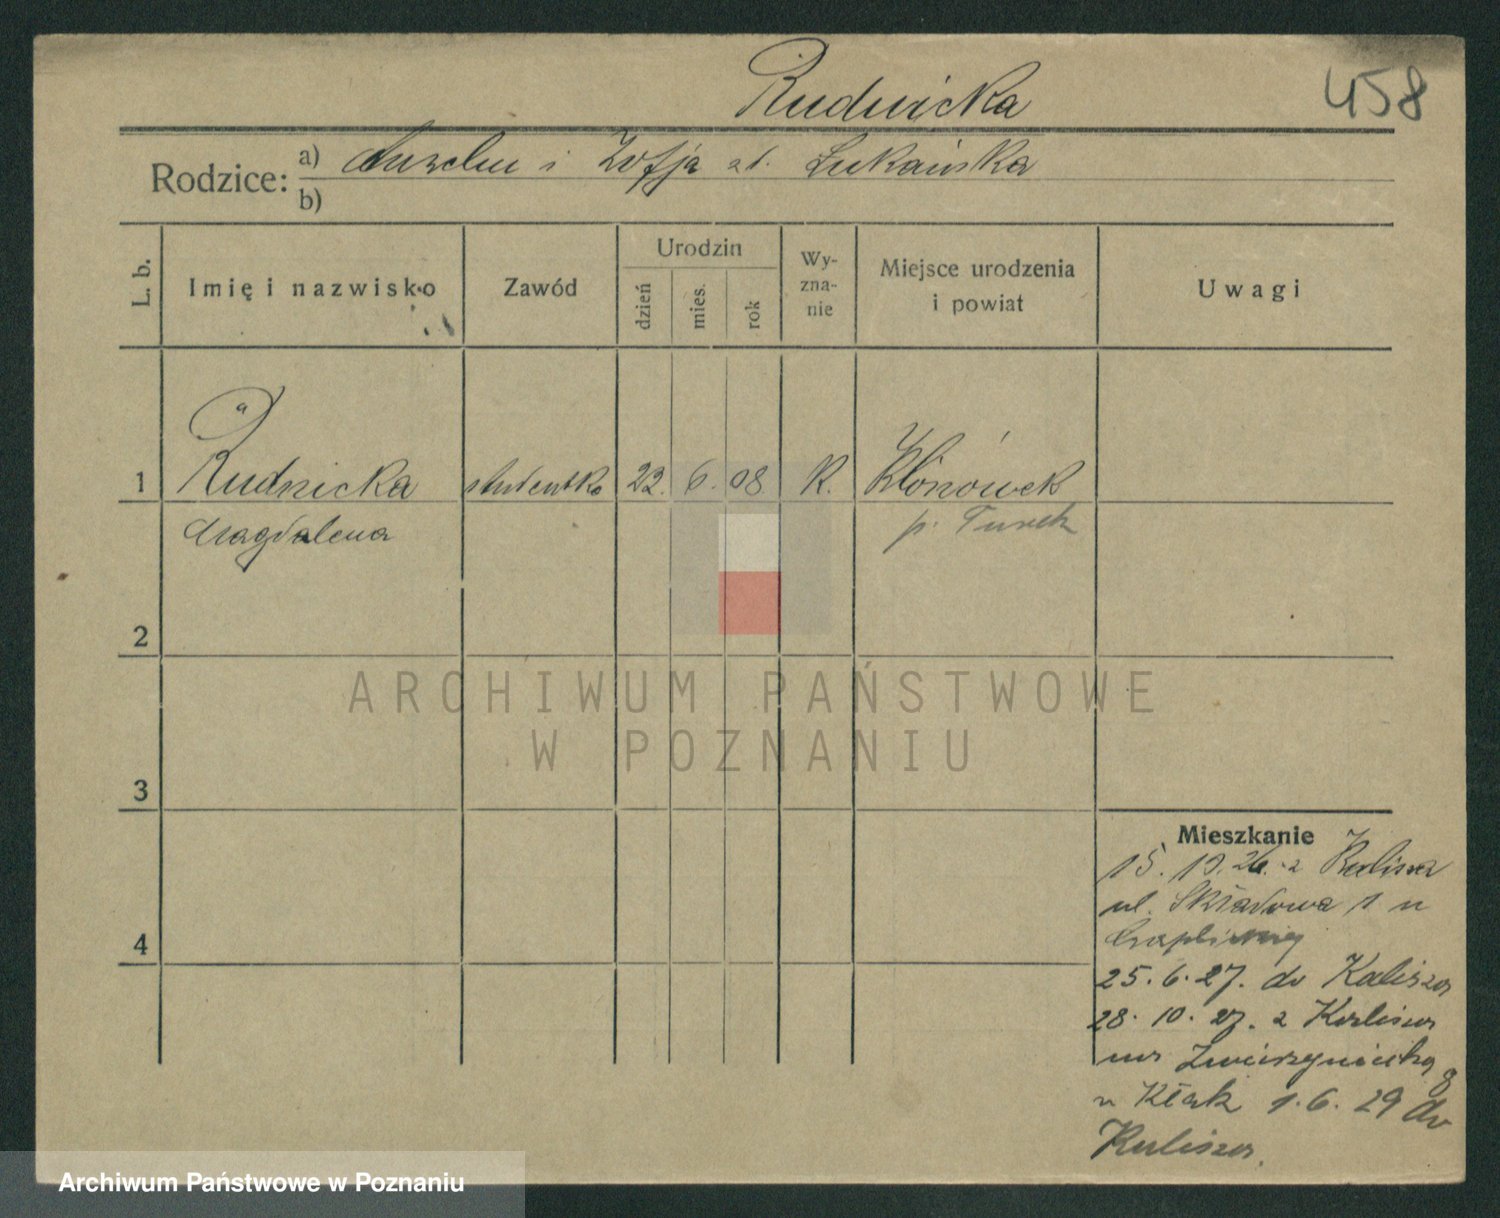 Rudnicka
458
Rodzice:
a) i Zofja zd. Łukaińska
b)
L. b.
Imię i nazwisko
Zawód
Urodzin
dzień
mies.
rok
Wy-
zna-
nie
Miejsce urodzenia
i powiat
Uwagi
1
Rudnicka
studentka
22.
6.
08
K.
Kłonówek
Magdalena
p. Turek
2
3
4
Mieszkanie
15. 10. 26. z Kalisza
ul. Składowa 1 u
25. 6. 27. do Kalisza
28. 10. 27. z Kalisza
na Zwierzyniecką 8
u Kłak 1. 6. 29 do
Kalisza.
ARCHIWUM PAŃSTWOWE
W POZNANIU
Archiwum Państwowe w Poznaniu